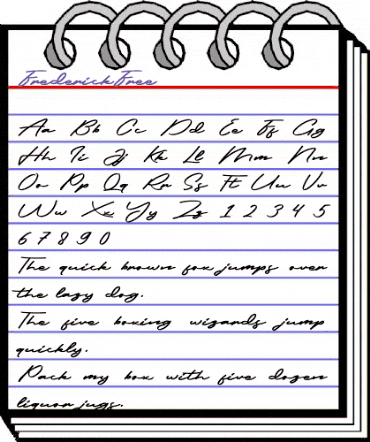 Frederick Free
Aa Bb Cc Dd Ee Ff Gg
Hh Ii Jj Kk Ll Mm Nn
Oo Pp Qq Rr Ss Tt Uu Vv
Ww Xx Yy Zz 1 2 3 4 5
6 7 8 9 0
The quick brown fox jumps over
the lazy dog.
The five boxing wizards jump
quickly.
Pack my box with five dozen
liquor jugs.